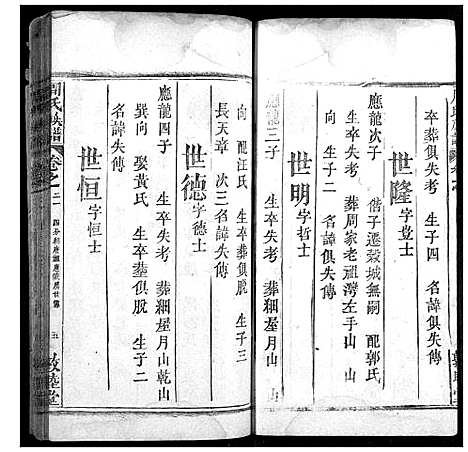 卒葬俱失考 生子四 名諱俱失傳
世隆字豈士
應龍次子 偕子遷穀城無嗣 配郭氏
生卒失考 葬周家老祖灣左手山
生子二 名諱俱失傳
世明字哲士
應龍三子 生卒失考 葬秵屋月山
向 配汪氏 生卒葬俱脫 生子三
長天章 次三名諱失傳
世德字德士
應龍四子 生卒失考 葬秵屋月山乾山
巽向 娶黃氏 生卒葬俱脫 生子二
名諱失傳
世恒字恒士
周氏族譜
卷之二
五
敦睦堂